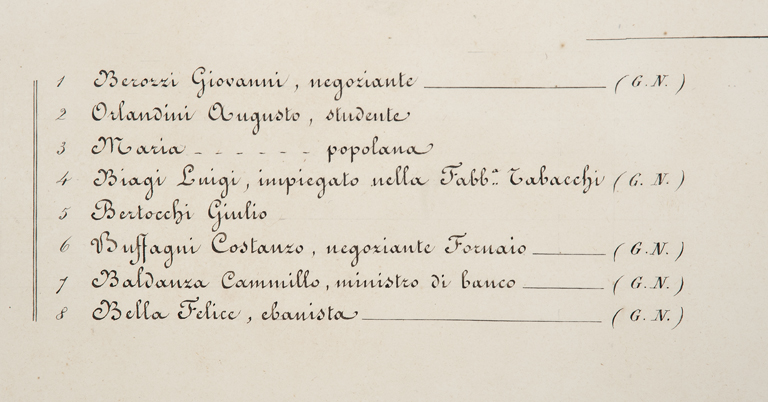 1 Berozzi Giovanni, negoziante (G. N.)
2 Orlandini Augusto, studente
3 Maria - - - - - - popolana
4 Biagi Luigi, impiegato nella Fabb.ª Tabacchi (G. N.)
5 Bertocchi Giulio
6 Buffagni Costanzo, negoziante Fornaio (G. N.)
7 Baldanza Cammillo, ministro di banco (G. N.)
8 Bella Felice, ebanista (G. N.)